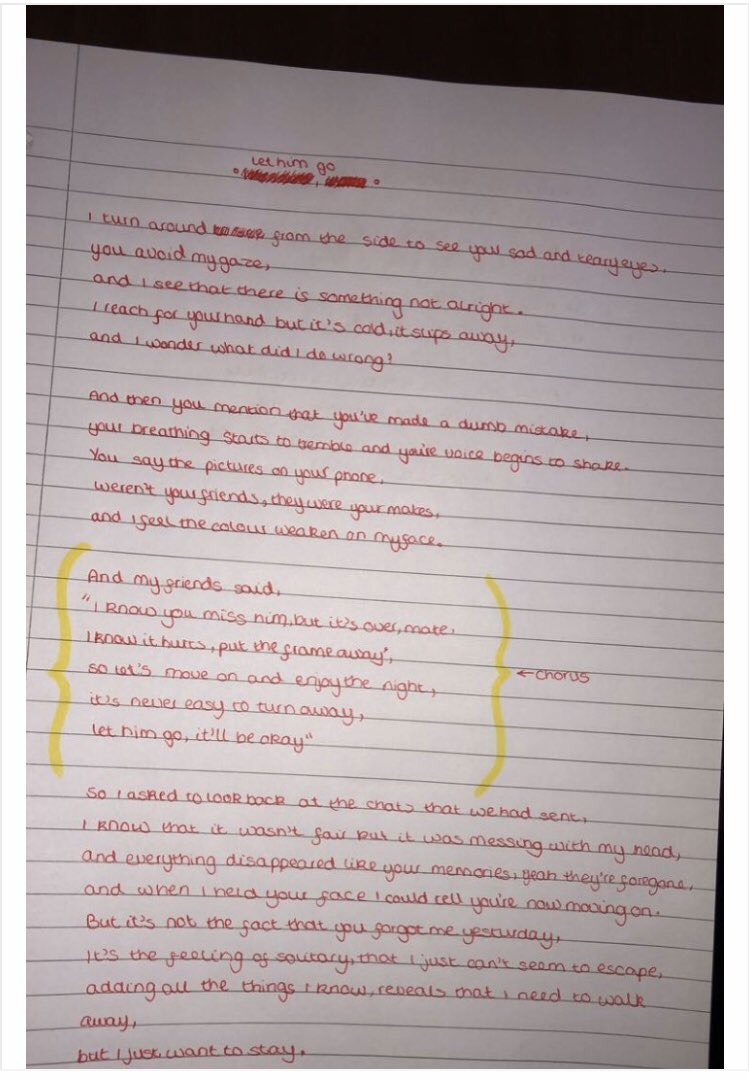 let him go
I turn around from the side to see your sad and teary eyes.
you avoid my gaze,
and I see that there is something not alright.
I reach for your hand but it's cold, it slips away,
and I wonder what did I do wrong?
And then you mention that you've made a dumb mistake,
your breathing starts to tremble and you're voice begins to shake.
You say the pictures on your phone,
weren't your friends, they were your mates,
and I feel the colour weaken on my face.
And my friends said,
"I know you miss him, but it's over, mate.
I know it hurts, put the frame away",
so let's move on and enjoy the night,
it's never easy to turn away,
let him go, it'll be okay"
← chorus
So I asked to look back at the chats that we had sent,
I know that it wasn't fair but it was messing with my head,
and everything disappeared like your memories, yeah they're foregone,
and when I held your face I could tell you're now moving on.
But it's not the fact that you forgot me yesturday,
It's the feeling of solitary, that I just can't seem to escape,
adding all the things I know, reveals that I need to walk
away,
but I just want to stay.